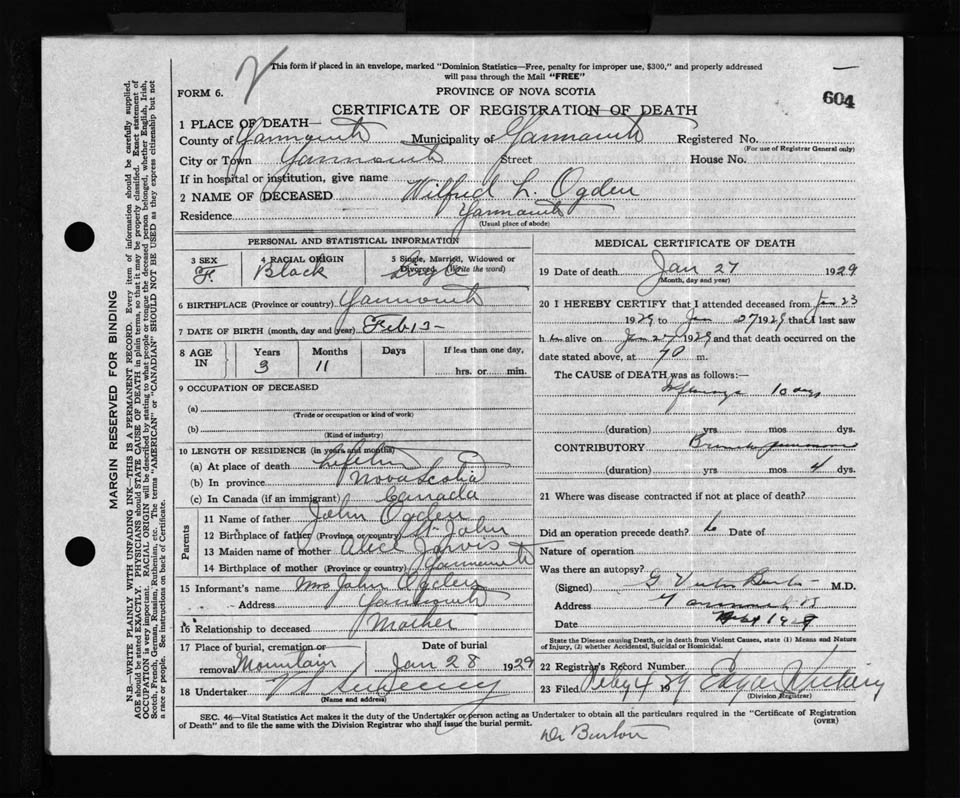 This form if placed in an envelope, marked "Dominion Statistics—Free, penalty for improper use, $300," and properly addressed
will pass through the Mail "FREE"
FORM 6.
PROVINCE OF NOVA SCOTIA
604
CERTIFICATE OF REGISTRATION OF DEATH
1 PLACE OF DEATH—
County of Yarmouth Municipality of Yarmouth Registered No.
(For use of Registrar General only)
City or Town Yarmouth Street House No.
If in hospital or institution, give name
2 NAME OF DECEASED Wilfred L. Ogden
Residence Yarmouth
(Usual place of abode)
PERSONAL AND STATISTICAL INFORMATION
3 SEX 4 RACIAL ORIGIN 5 Single, Married, Widowed or
Divorced (Write the word)
F. Black Single
6 BIRTHPLACE (Province or country) Yarmouth
7 DATE OF BIRTH (month, day and year) Feb 13 -
8 AGE IN Years Months Days If less than one day,
3 11 hrs. or min.
9 OCCUPATION OF DECEASED
(a)
(Trade or occupation or kind of work)
(b)
(Kind of industry)
10 LENGTH OF RESIDENCE (in years and months)
(a) At place of death Lifetime
(b) In province Nova Scotia
(c) In Canada (if an immigrant) Canada
Parents
11 Name of father John Ogden
12 Birthplace of father (Province or country) St. John
13 Maiden name of mother Alice Jarvis
14 Birthplace of mother (Province or country) Yarmouth
15 Informant's name Mrs John Ogden
Address Yarmouth
16 Relationship to deceased Mother
17 Place of burial, cremation or Date of burial
removal Mountain Jan 28 1929
18 Undertaker V S Sweeney
(Name and address)
MEDICAL CERTIFICATE OF DEATH
19 Date of death Jan 27 1929
(Month, day and year)
20 I HEREBY CERTIFY that I attended deceased from Jan 23
1929 to Jan 27 1929 that I last saw
h alive on Jan 27 1929 and that death occurred on the
date stated above, at m.
The CAUSE of DEATH was as follows:—
Influenza 10 days
(duration) yrs mos dys.
CONTRIBUTORY
(duration) yrs mos 4 dys.
21 Where was disease contracted if not at place of death?
Did an operation precede death? Date of
Nature of operation
Was there an autopsy?
(Signed) M.D.
Address
Date
State the Disease causing Death, or in death from Violent Causes, state (1) Means and Nature
of Injury, (2) whether Accidental, Suicidal or Homicidal.
22 Registrar's Record Number
23 Filed Feby 4 29
(Division Registrar)
SEC. 46—Vital Statistics Act makes it the duty of the Undertaker or person acting as Undertaker to obtain all the particulars required in the "Certificate of Registration
of Death" and to file the same with the Division Registrar who shall issue the burial permit. (OVER)
Dr Burton
MARGIN RESERVED FOR BINDING
N.B.—WRITE PLAINLY WITH UNFADING INK—THIS IS A PERMANENT RECORD. Every item of information should be carefully supplied.
AGE should be stated EXACTLY. PHYSICIANS should STATE CAUSE OF DEATH in plain terms, so that it may be properly classified. Exact statement of
OCCUPATION is very important. RACIAL ORIGIN will be described by stating to what people or tongue the deceased person belonged, whether English, Irish,
Scotch, French, German, Russian, Ruthenian, etc. The terms "AMERICAN" or "CANADIAN" SHOULD NOT BE USED as they express citizenship but not
a race or people. See instructions on back of Certificate.